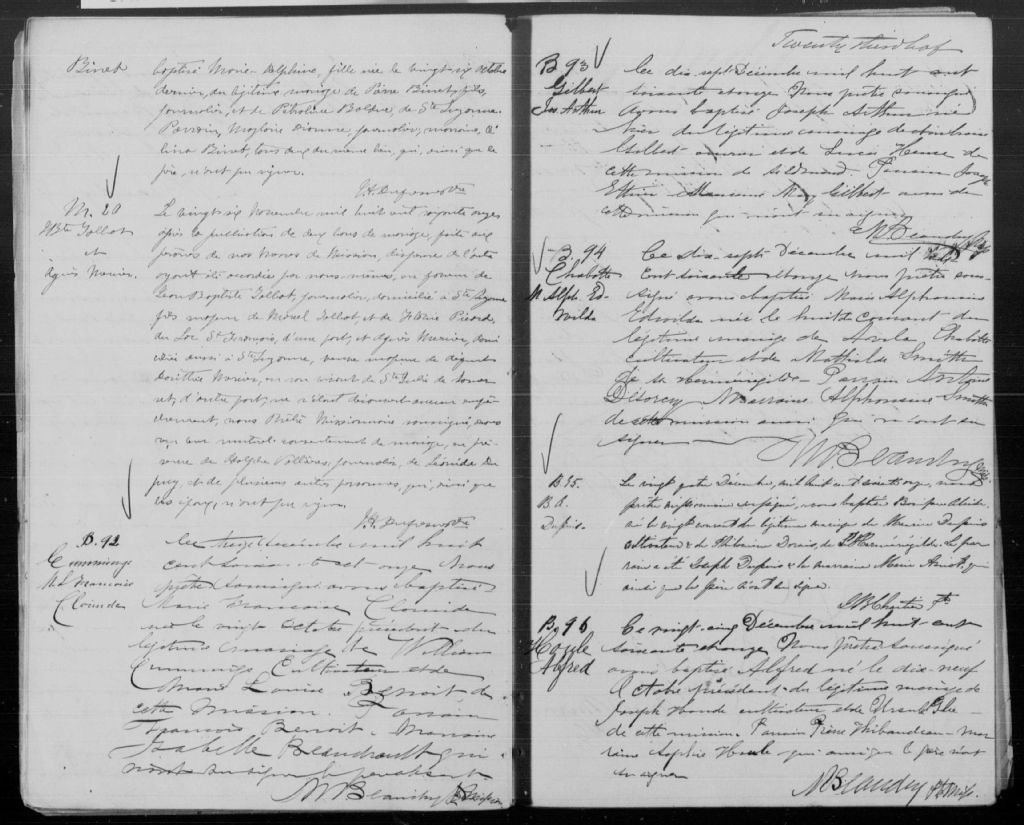 Binet
baptisé Marie Delphine, fille née le vingt six octobre
dernier, du légitime mariage de Pierre Binet, fils,
journalier, et de Pétronille Bolduc, de Ste Suzanne.
Parrain, Magloire Dionne, journalier, marraine, Cé-
lina Binet, tous deux du même lieu, qui, ainsi que le
père, n'ont pu signer.
M. 20
J Bte Jolbot
et
Agnès Mercier.
Le vingt six Novembre mil huit cent soixante onze
après la publication de deux bans de mariage, faite aux
prônes de nos Messes de Mission, dispense de l'autre
ayant été accordée par nous-mêmes, en faveur de
Jean Baptiste Jolbot, journalier, domicilié à Ste Suzanne
fils majeur de Michel Jolbot, et de Picard,
du Loc St François, d'une part, et Agnès Mercier, domi
ciliée aussi à Ste Suzanne, veuve majeure de défunt
Mercier, en son vivant de Ste Julie de Somer
set, d'autre part, ne s'étant découvert aucun empê-
chement, nous Prêtre Missionnaire soussigné, avons
reçu leur mutuel consentement de mariage, en pré-
sence de Adolphe Vallières, journalier, de Léonide Du
puy, et de plusieurs autres personnes, qui, ainsi que
les époux, n'ont pu signer.
B. 92
Cummings
M L Francoise
Clorinde
Le treize Décembre mil huit
cent soixante et onze Nous
prêtre soussigné avons baptisé
Marie Francoise Clorinde
née le vingt Octobre précédent du
légitime mariage de William
Cummings Cultivateur et de
Marie Louise Benoit de
cette Mission. Parrain
François Benoit. Marraine
Isabelle Beaudrault qui
n'ont su signer le père absent
MP Beaudry Ptre Miss
Twenty third leaf
B 93
Gilbert
Jos. Arthur
Le dix sept Décembre mil huit cent
soixante et onze Nous prêtre soussigné
Avons baptisé Joseph Arthur né
hier du légitime mariage de
Gilbert ouvrier et de Lucie Hence de
cette mission de St Edmond. Parrain Joseph
Marraine Mary Gilbert aussi de
cette mission qui n'ont su signer
MP Beaudry
B. 94
Chabotte
M Alph. Ed-
wilda
Ce dix sept Décembre mil huit
Cent soixante et onze Nous prêtre sous-
signé avons baptisé Marie Alphonsine
Edwilda née le huit du courant du
légitime mariage de Avila Chabotte
Cultivateur et de Mathilde Smith
de Ste Herménégilde. Parrain Antoine
Désorcy Marraine Alphonsine Smith
de cette mission aussi Qui n'ont su
signer
MP. Beaudry
B. 95.
B. A.
Dupuis.
Le vingt quatre Décembre, mil huit cent soixante onze, nous
prêtre missionnaire soussigné, avons baptisé
né le vingt courant du légitime mariage de Dupuis
cultivateur & de Philomène Dorais, de St Herménégilde. Le par
rain a été Joseph Dupuis & la marraine Marie qui
ainsi que le père n'ont su signer.
JB Chartier Ptre
B. 96
Houle
Alfred
Ce vingt-cinq Décembre mil huit cent
soixante et onze Nous prêtre soussigné
avons baptisé Alfred né le dix-neuf
Octobre précédent du légitime mariage de
Joseph Houde cultivateur et de Ursule
de cette mission Parrain Pierre Thibaudeau mar-
raine Sophie Houle qui ainsi que le père n'ont
su signer
MP Beaudry Ptre Miss.